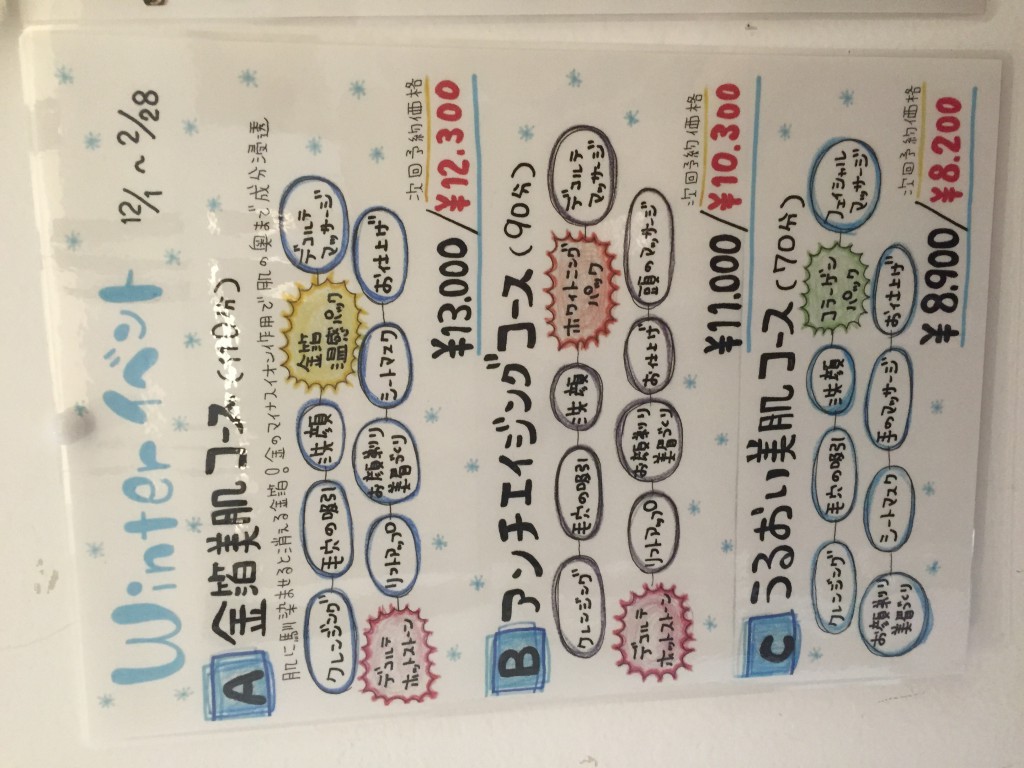 Winter イベント 12/1 ~ 2/28
A 金箔美肌コース (110分)
肌に馴染ませると消える金箔。金のマイナスイオン作用で肌の奥まで成分浸透
クレンジング 毛穴の吸引 洗顔 金箔温感パック デコルテマッサージ
デコルテホットストーン リフトアップ お顔剃り美眉づくり シートマスク お仕上げ
次回予約価格
¥13.000/¥12.300
B アンチエイジングコース (90分)
クレンジング 毛穴の吸引 洗顔 ホワイトニングパック デコルテマッサージ
デコルテホットストーン リフトアップ お顔剃り美眉づくり お仕上げ 頭のマッサージ
次回予約価格
¥11.000/¥10.300
C うるおい美肌コース (70分)
クレンジング 毛穴の吸引 洗顔 コラーゲンパック フェイシャルマッサージ
お顔剃り美眉づくり シートマスク 手のマッサージ お仕上げ
次回予約価格
¥8.900/¥8.200